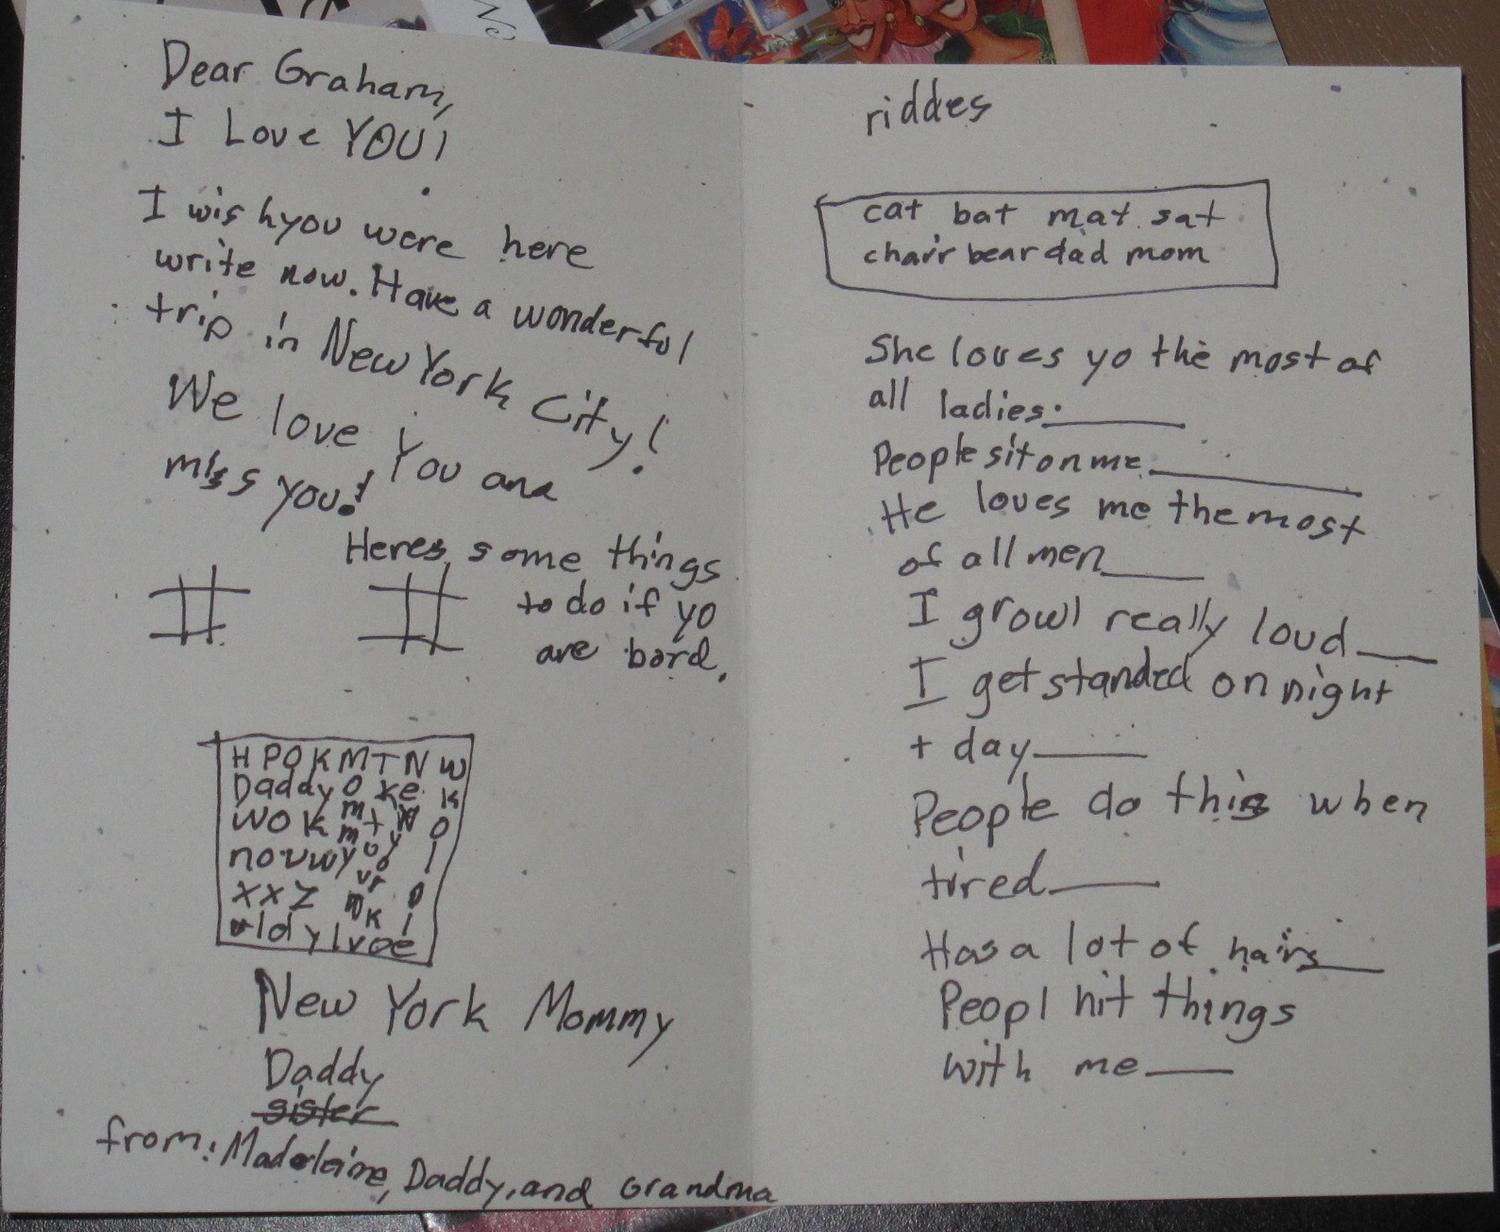 Dear Graham,
I Love YOU!
I wish you were here
write now. Have a wonderful
trip in New York City!
We love You and
miss you!
Heres some things
to do if yo
are bord.
H P O K M T N W
Daddy O Ke K
WOK m t N O
nouwy
XXZ
ldylvoe
New York Mommy
Daddy
sister
from: Madeleine, Daddy, and Grandma
riddes
cat bat mat sat
chair bear dad mom
She loves yo the most of
all ladies:
People sit on me
He loves me the most
of all men
I growl really loud
I get standed on night
+ day
People do this when
tired
Has a lot of hairs
Peopl hit things
with me